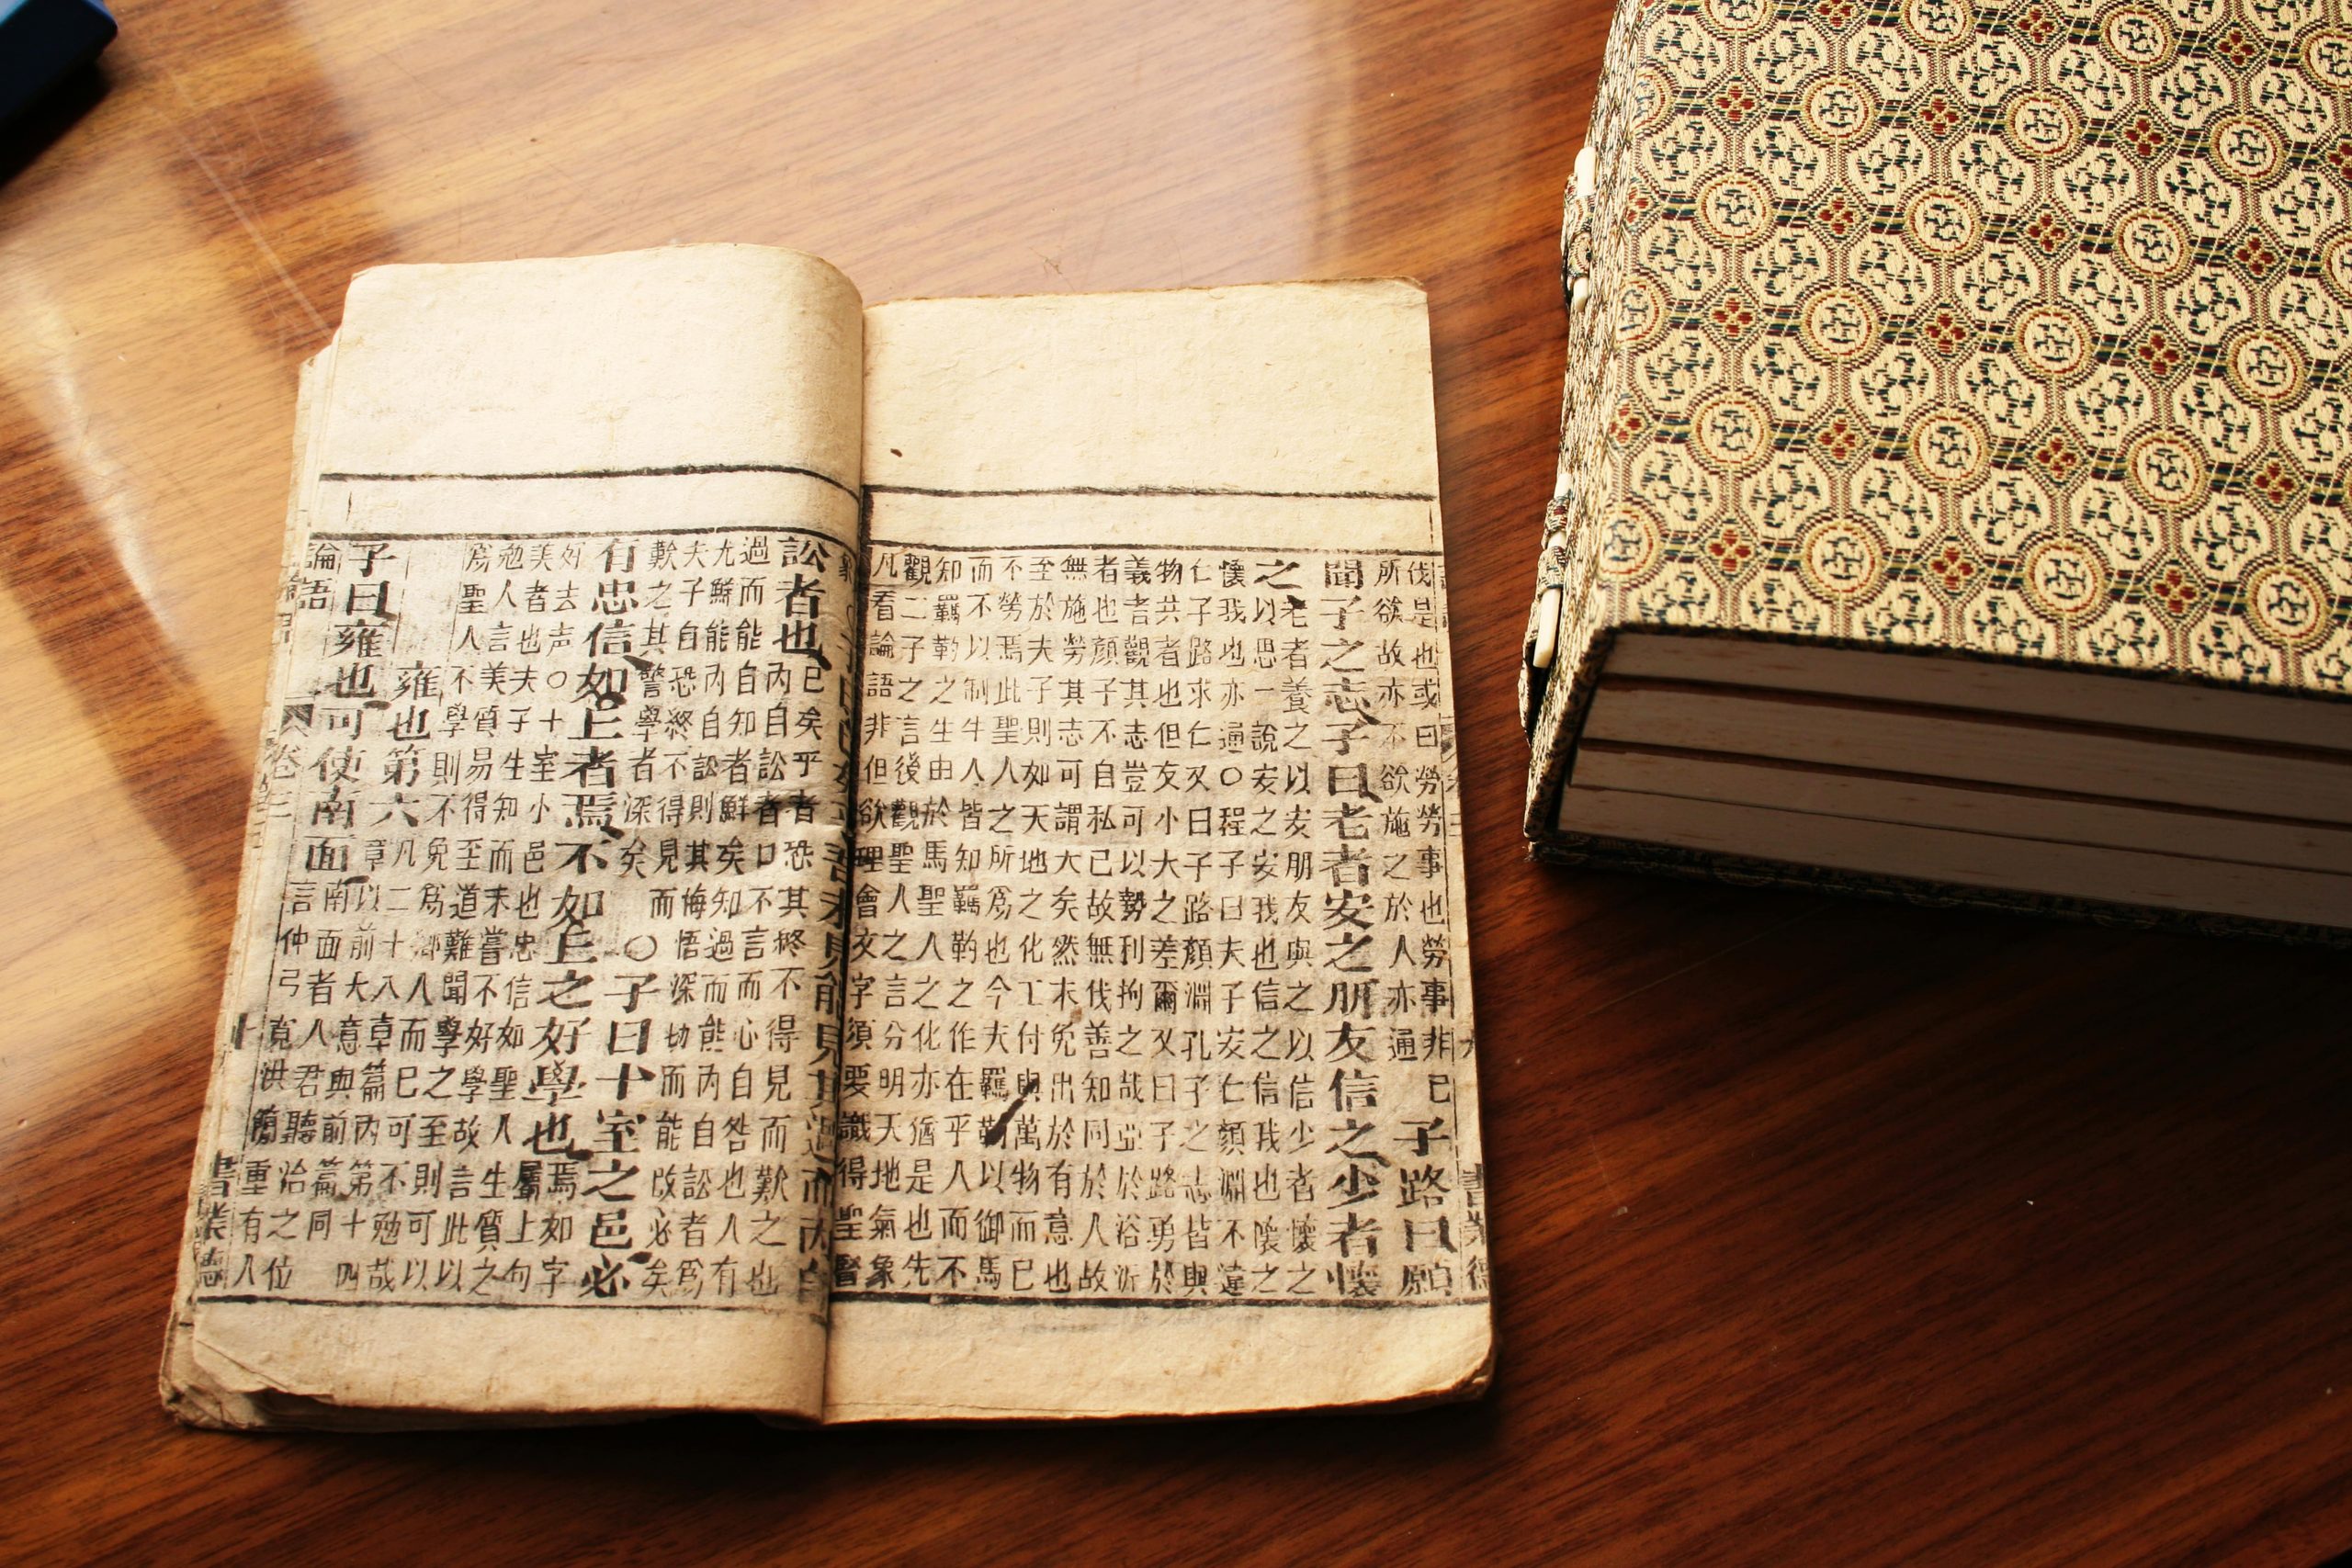 伐是也或曰勞勞事也勞事非己
所欲故亦不欲施之於人亦通
子路曰願
聞子之志子曰老者安之朋友信之少者懷
之
老者養之以安朋友與之以信少者懷之
以思一說安之安我也信之信我也懷之
懷我也亦通○程子曰夫子安仁顏淵不違
仁子路求仁又曰子路顏淵孔子之志皆與
物共者也但友小大之差爾又曰子路勇於
義者觀其志豈可以勢利拘之哉亞於浴沂
者也顏子不自私己故無伐善知同於人故
無施勞其志可謂大矣然未免出於有意也
至於夫子則如天地之化工付與萬物而已
不勞焉此聖人之所爲也今夫羈靮以御馬
而不以制牛人皆知羈靮之作在乎人而不
知羈靮之生由於馬聖人之化亦猶是也先
觀二子之言後觀聖人之言分明天地氣象
凡看論語非但欲理會文字須要識得聖賢
吾未見能見其過而內自
訟者也
已矣乎者恐其終不得見而歎之也
內自訟者口不言而心自咎也人有
過而能自知者鮮矣知過而能內自訟者爲
尤鮮能內自訟則其悔悟深切而能改必矣
夫子自恐終不得見而
歎之其警學者深矣
○子曰十室之邑必
有忠信如丘者焉不如丘之好學也
焉如字
屬上句
好去声○十室小邑也忠信如聖人生質之
美者也夫子生知而未嘗不好學故言此以
勉人言美質易得至道難聞學之至則可以
爲聖人不學則不免爲鄉人而已可不勉哉
雍也第六
凡二十八章篇內第十四
章以前大意與前篇同
子曰雍也可使南面
南面者人君聽治之位
言仲弓寬洪簡重有人
論語
卷三
十
書業德